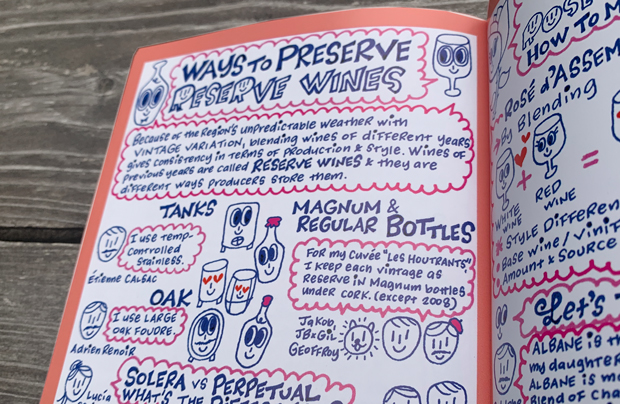 WAYS TO PRESERVE
RESERVE WINES
BECAUSE OF THE REGION'S UNPREDICTABLE WEATHER WITH
VINTAGE VARIATION, BLENDING WINES OF DIFFERENT YEARS
GIVES CONSISTENCY IN TERMS OF PRODUCTION & STYLE. WINES OF
PREVIOUS YEARS ARE CALLED RESERVE WINES & THEY ARE
DIFFERENT WAYS PRODUCERS STORE THEM.
TANKS
I USE TEMP-
CONTROLLED
STAINLESS.
Étienne CALSAC
OAK
I USE LARGE
OAK FOUDRE.
Adrien Renoir
MAGNUM &
REGULAR BOTTLES
FOR MY CUVÉE "LES HOUTRANTS",
I KEEP EACH VINTAGE AS
RESERVE IN MAGNUM BOTTLES
UNDER CORK. (EXCEPT 2008)
JaKob,
JB&Gil
GEOFFROY
Lucía
SOLERA VS PERPETUAL
WHAT'S THE
HOW TO M
ROSÉ d'ASSEM
By Blending
WHITE
WINE
+
RED
WINE
=
STYLE DIFFEREN
Base wine / Vinif
Amount & Source
LET'S
ALBANE IS th
my daughter
ALBANE is m
Blend of Cha